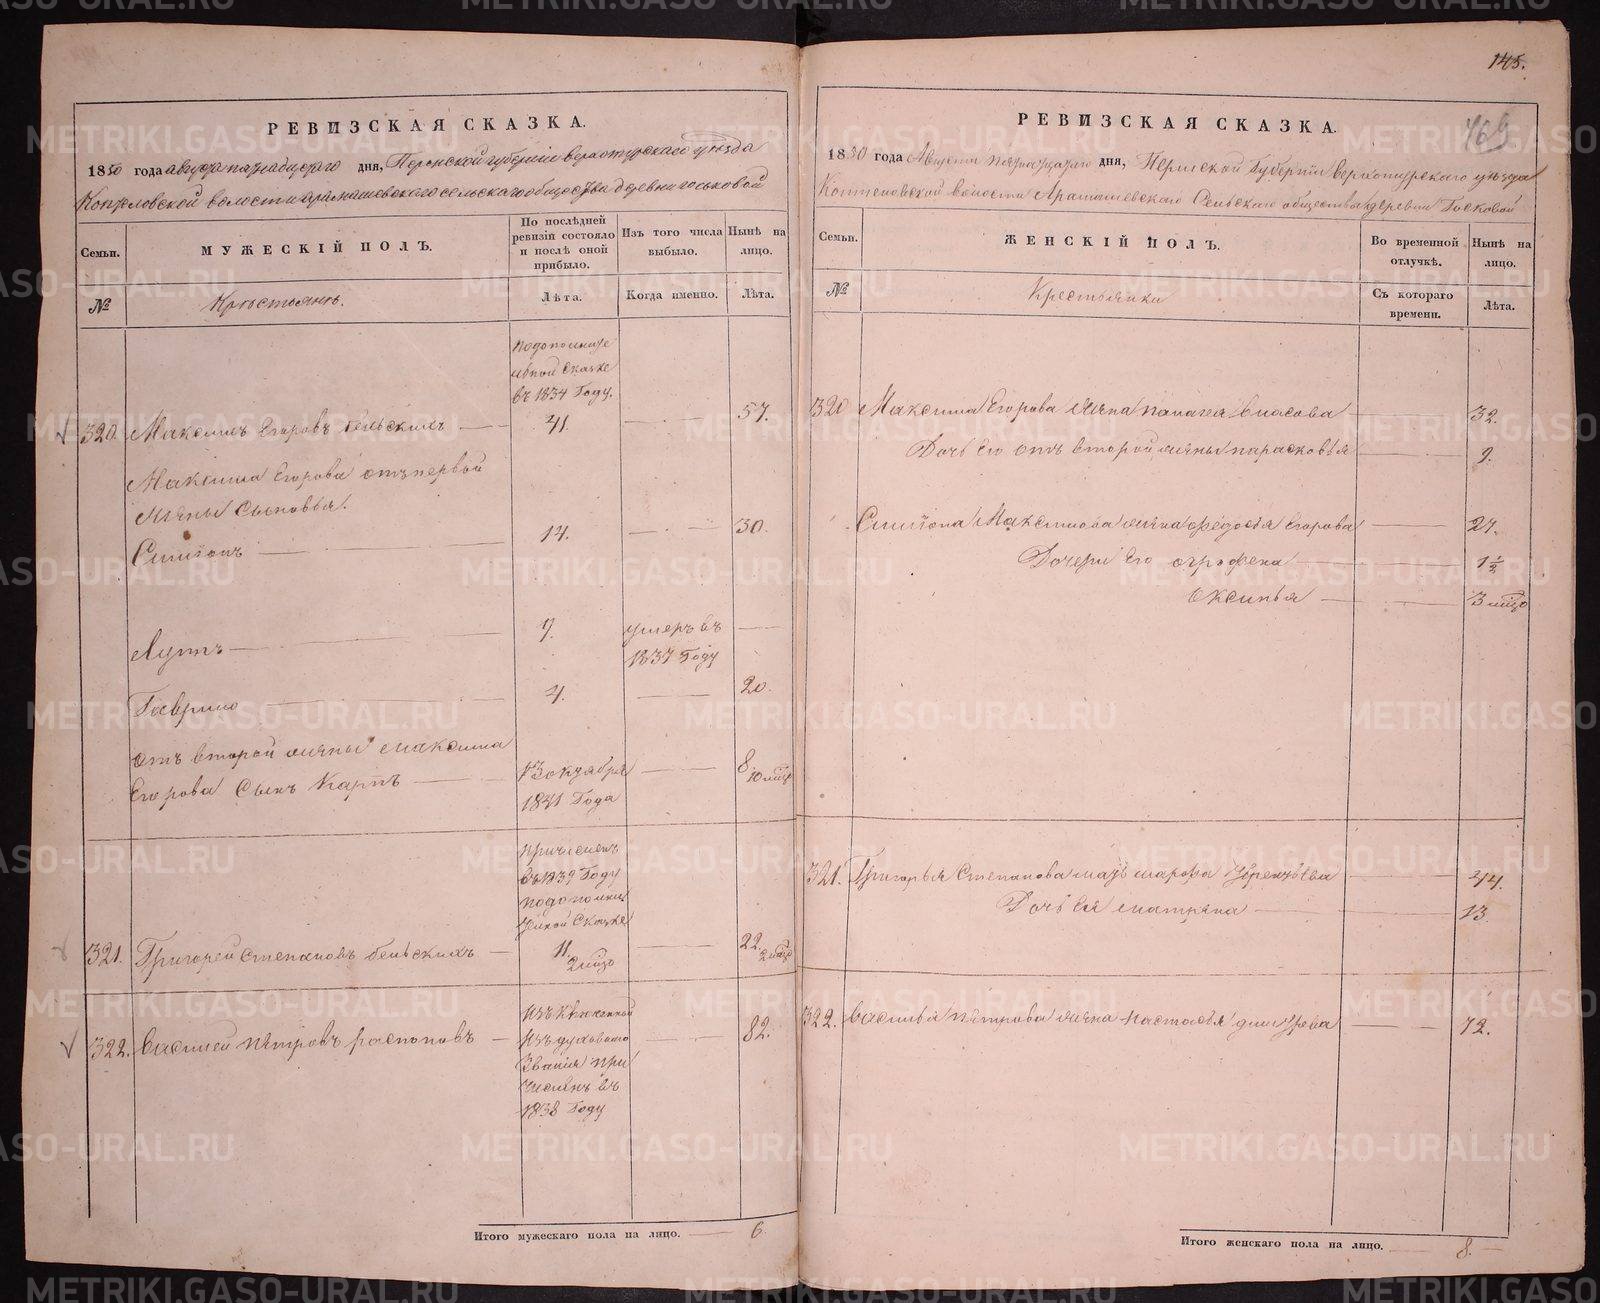 РЕВИЗСКАЯ СКАЗКА.
1850 года августа пятнадцатого дня, Пермской губернии верхотурского уезда
волости сельского общества деревни
Семьи.
МУЖЕСКІЙ ПОЛЪ.
По послѣдней ревизіи состояло и послѣ оной прибыло.
Изъ того числа выбыло.
Нынѣ на лицо.
№
Крестьянъ.
Лѣта.
Когда именно.
Лѣта.
подополните
льной сказке
въ 1834 Году.
320. Максимъ Егоровъ бельскихъ 41. 57.
Максима Егорова отъ первой
жены сыновья.
Симионъ 14. 30.
9. умеръ въ
1837 Году
Гаврило 4. 20.
отъ второй жены максима
Егорова Сынъ Карпъ 13 октября 8 10 мѣц
1841 Года
причисленъ
въ 1839 Году
321. Григорей Степановъ бельскихъ 11. 22.
322. василей петровъ распоповъ 82.
изъ духовного
звания при
численъ въ
1838 Году
Итого мужескаго пола на лицо. 6
145.
469
РЕВИЗСКАЯ СКАЗКА.
1850 года Августа пятнацатаго дня, Пермской Губернии верхотурского уезда
волости Арамашевского Сельского общества деревни
Семьи.
ЖЕНСКІЙ ПОЛЪ.
Во временной отлучкѣ.
Нынѣ на лицо.
№
Крестьянки
Съ котораго времени.
Лѣта.
320 Максима Егорова жена власова 32.
Дочь его отъ второй жены парасковья 9.
Симиона Максимова жена федосья Егорова 27.
Дочери Его 1½
оксинья 3 мѣцо
321. Григорья Степанова мать 44.
Дочь ея матрена 13.
322. василья петрова жена настасья 72.
Итого женскаго пола на лицо. 8.
METRIKI.GASO-URAL.RU